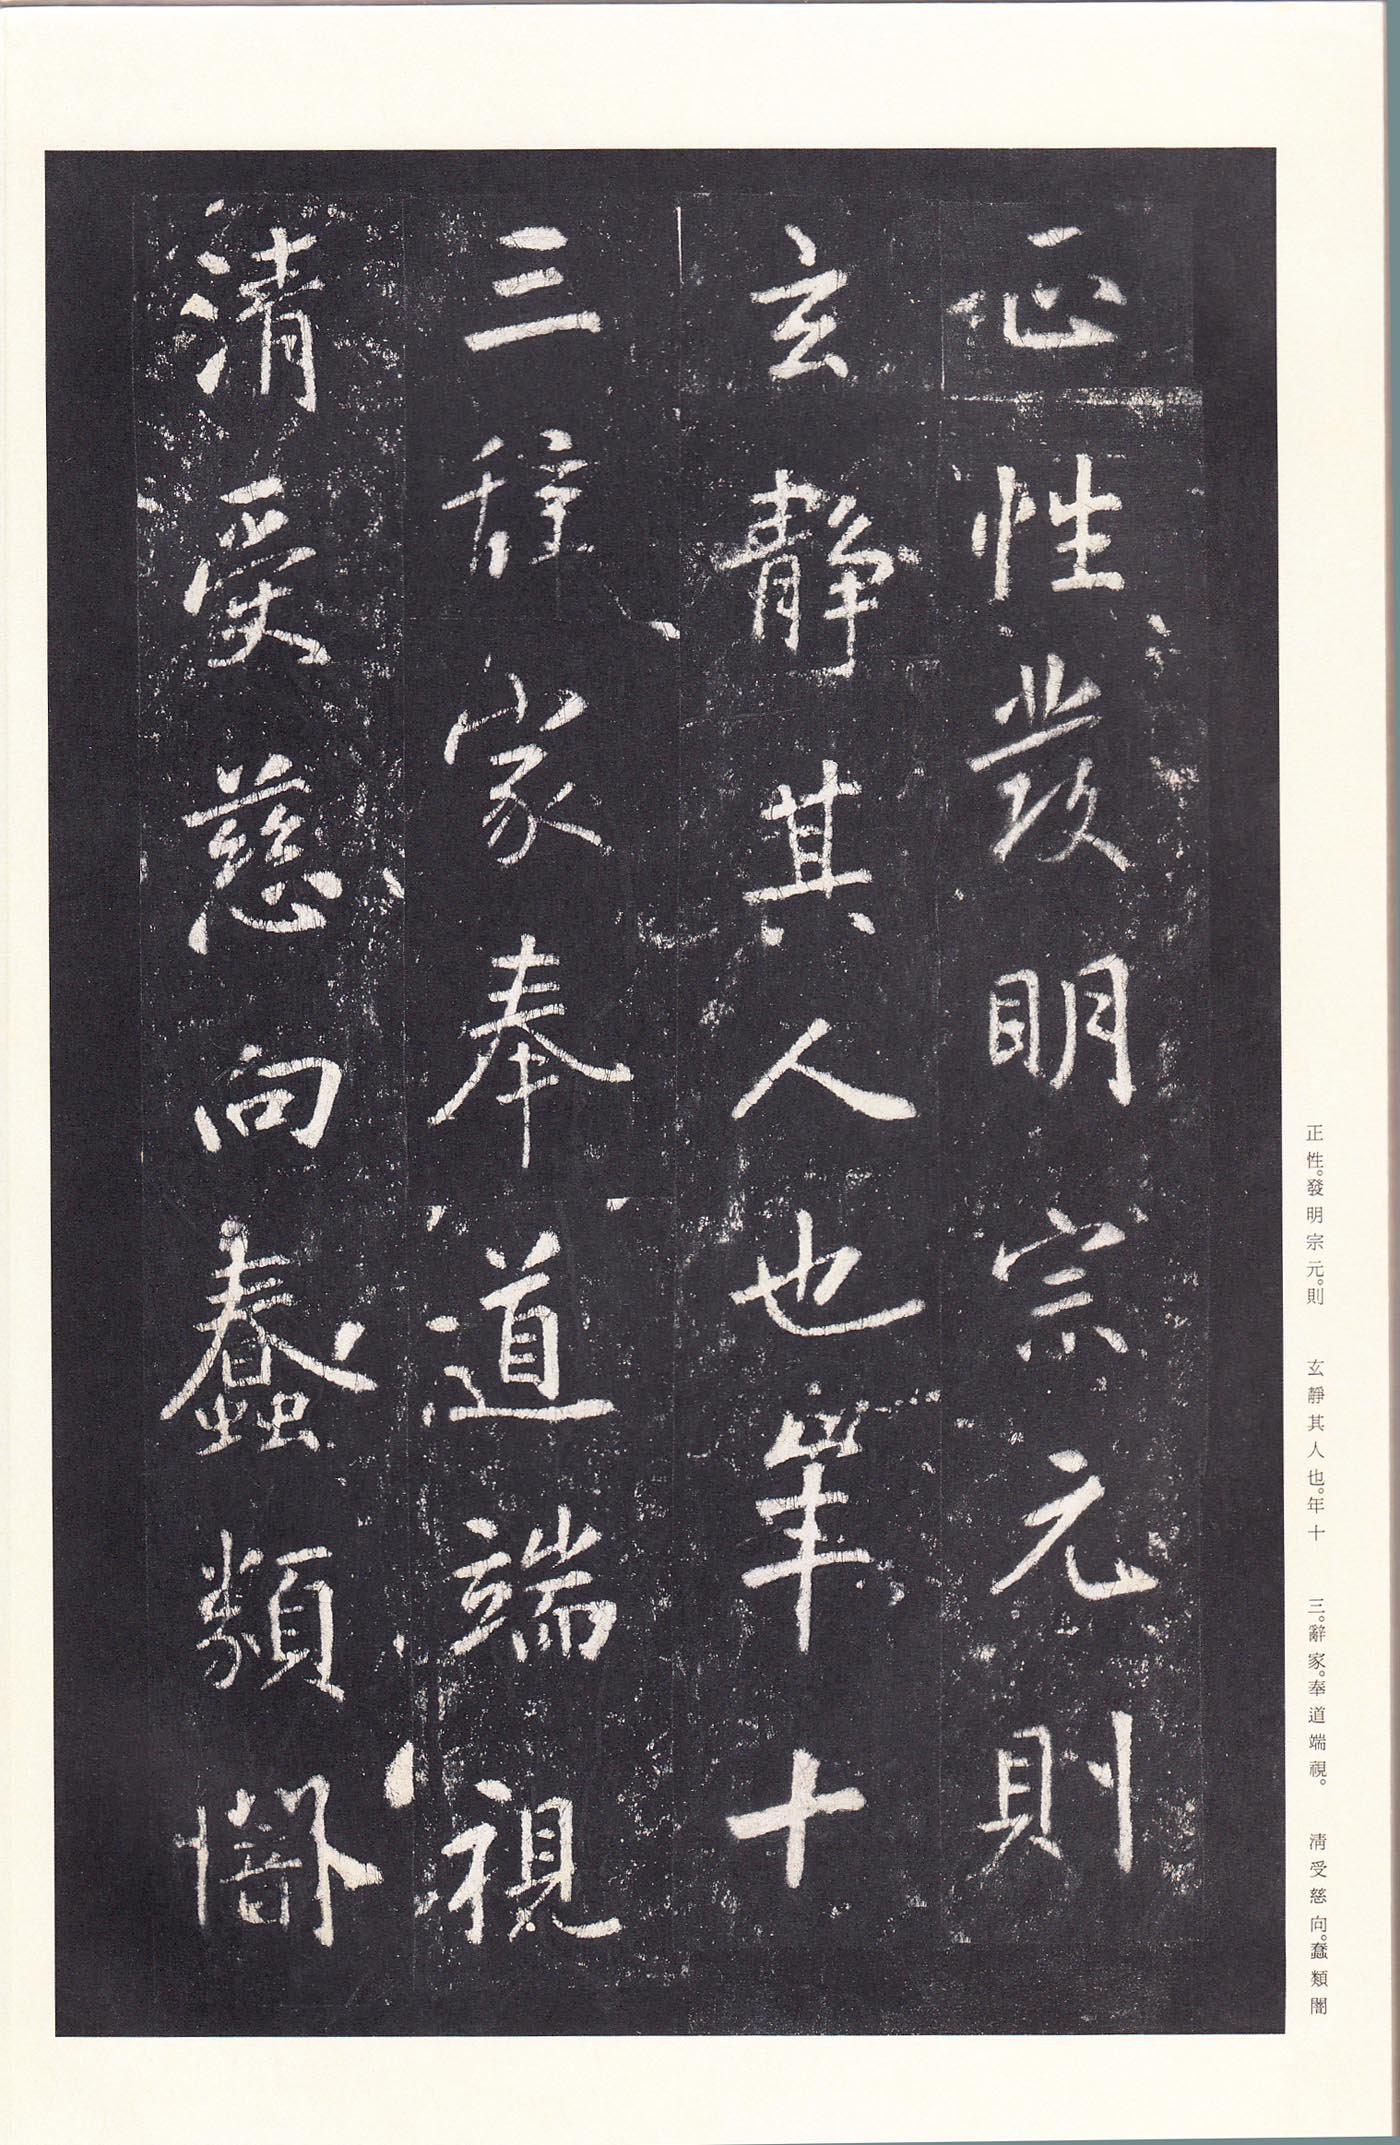 正性發明宗元則
玄靜其人也年十
三辞家奉道端視
清受慈向蠢類闇
正性。發明宗元。則　玄靜其人也。年十　三。辭家。奉道端視。　清受慈向。蠢類闇